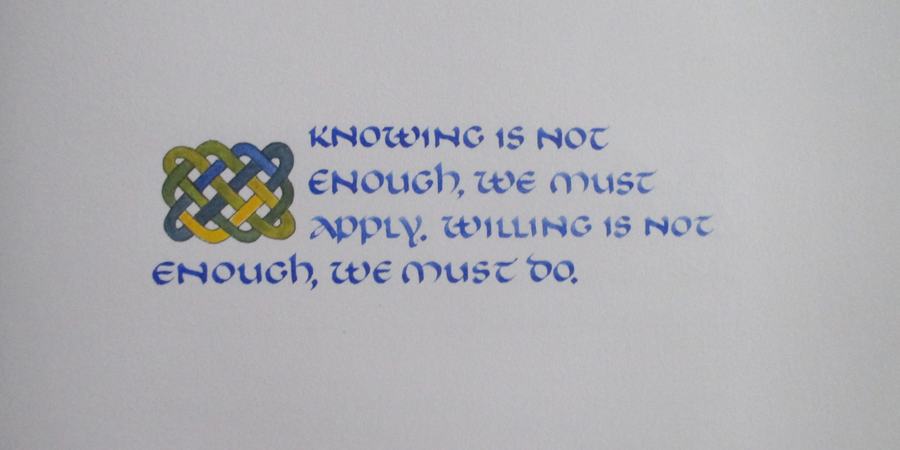 KNOWING IS NOT
ENOUGH, WE MUST
APPLY. WILLING IS NOT
ENOUGH, WE MUST DO.